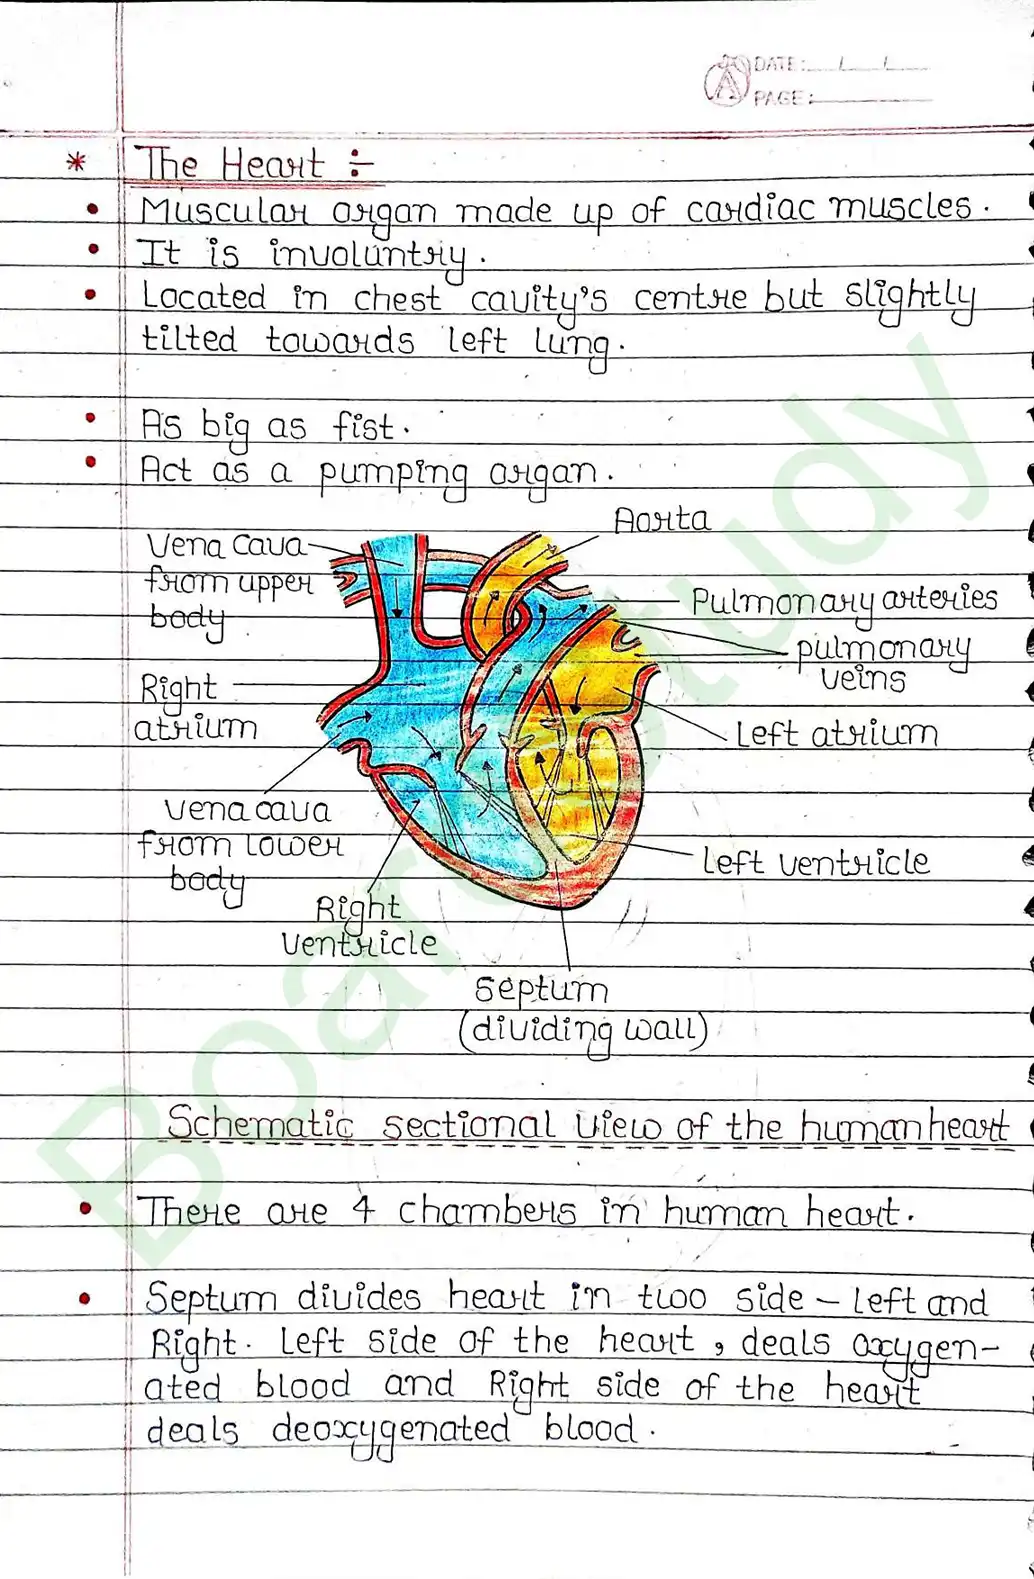 DATE: / /
PAGE:
* The Heart ÷
• Muscular organ made up of cardiac muscles.
• It is involuntry.
• Located in chest cavity's centre but slightly
tilted towards left lung.
• As big as fist.
• Act as a pumping organ.
Aorta
Vena cava
from upper
body
Pulmonary arteries
pulmonary
veins
Right
atrium
Left atrium
vena cava
from lower
body
Left ventricle
Right
ventricle
Septum
(dividing wall)
Schematic sectional view of the human heart
• There are 4 chambers in human heart.
• Septum divides heart in two side – Left and
Right. Left side of the heart, deals oxygen-
ated blood and Right side of the heart
deals deoxygenated blood.
Board Study